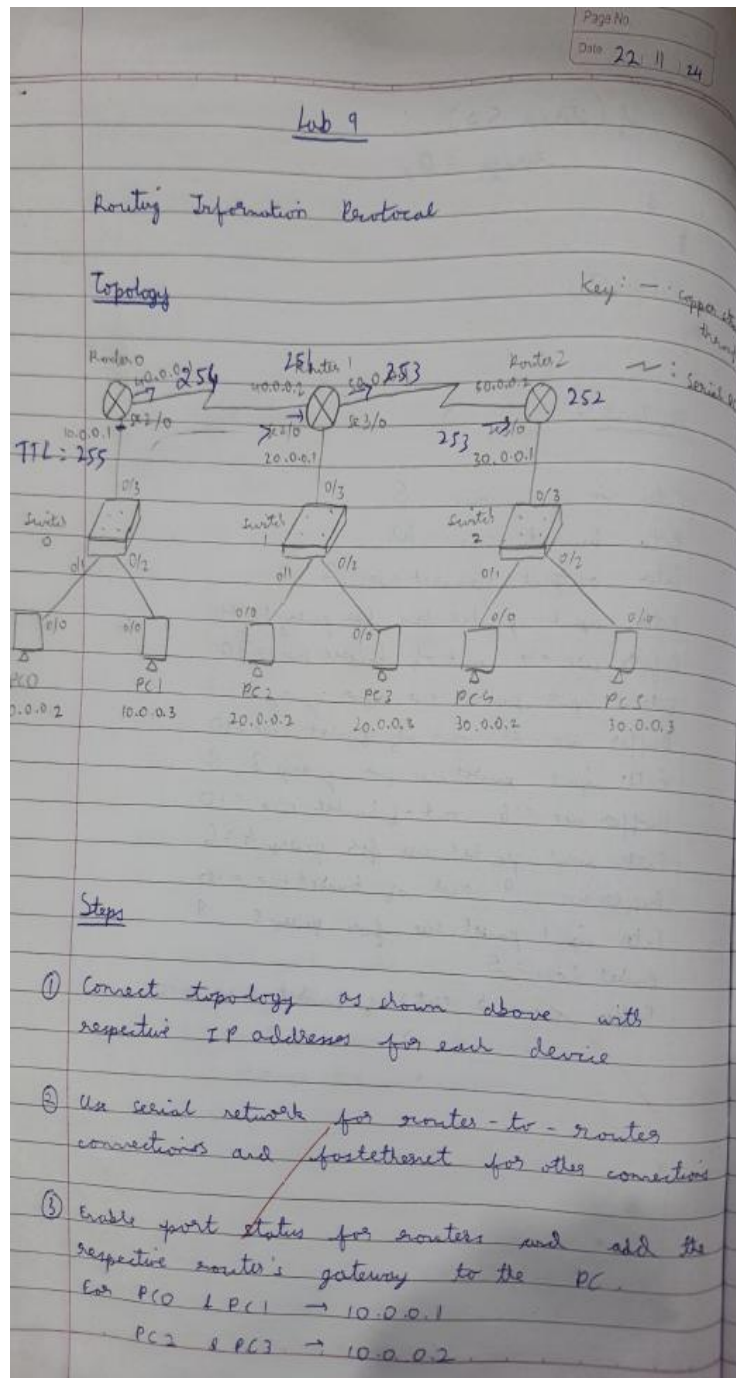 Page No.
Date 22 11 24
Lab 9
Routing Information Protocal
Topology
Key: — : copper
Router 0
40.0.0.1 254
254 Router 1
40.0.0.2
253
Router 2
50.0.0.2
252
~ : Serial
10.0.0.1
se2/0
se2/0
se3/0
253
TTL: 255
20.0.0.1
30.0.0.1
0/3
0/3
0/3
Switch
0
Switch
1
Switch
2
0/1
0/2
0/1
0/2
0/1
0/2
0/0
0/0
0/0
0/0
0/0
0/0
PC0
PC1
PC2
PC3
PC4
PC5
0.0.0.2
10.0.0.3
20.0.0.2
20.0.0.3
30.0.0.2
30.0.0.3
Steps
① Connect topology as shown above with
respective IP addresses for each device
② Use serial network for router-to-router
connections and fastethernet for other connections
③ Enable port status for routers and add the
respective router's gateway to the PC.
For PC0 & PC1 → 10.0.0.1
PC2 & PC3 → 10.0.0.2